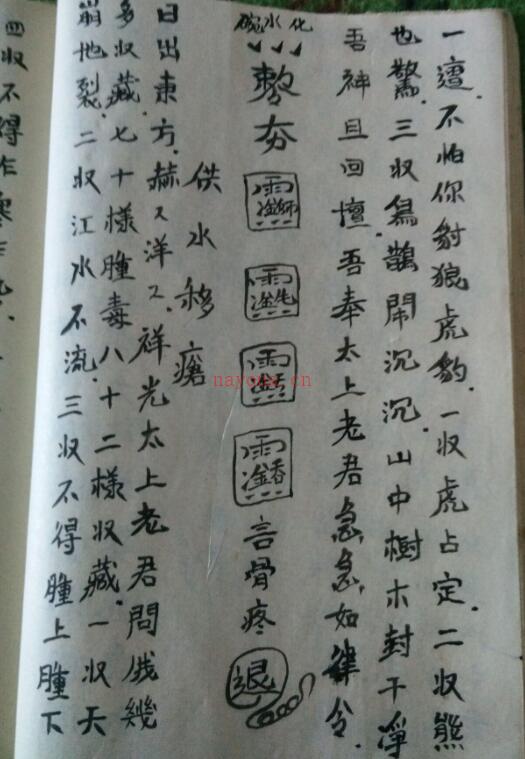 一遍.不怕你豺狼虎豹.一收虎占定.二收熊
也驚.三收鴉鵲鬧沉沉.山中樹木封干淨
吾神且回壇.吾奉太上老君急急如律令.
碗水化
敕夯
言骨疼
退
供水移瘡
日出東方.赫々洋々.祥光太上老君問俄幾
多收藏.七十樣腫毒八十二樣收藏.一收天
崩地裂.二收江水不流.三收不得腫上腫下
四收不得作
nayona.cn